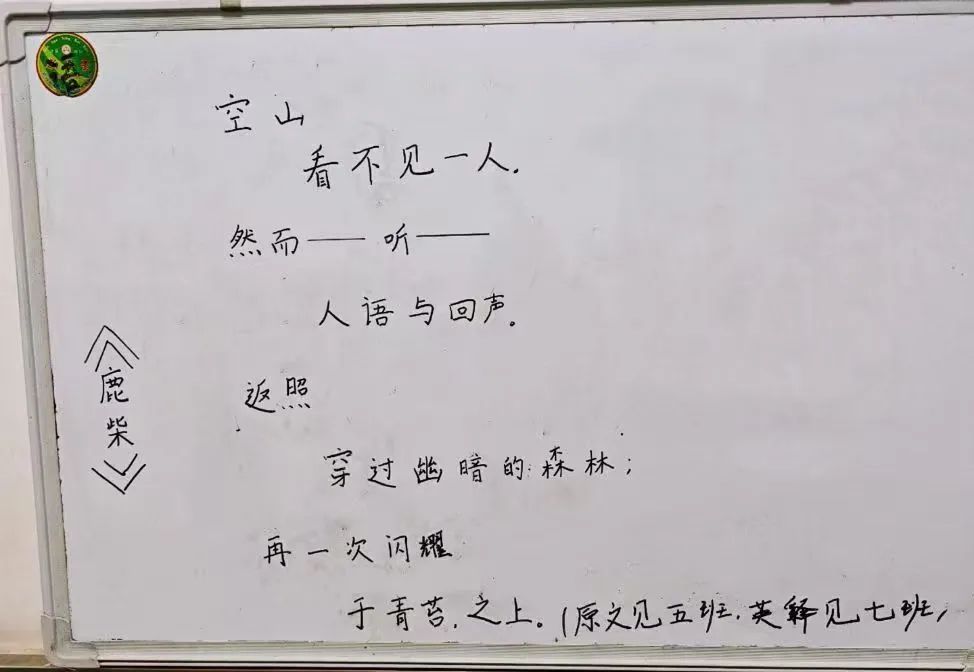 空山
看不见一人.
然而——听——
人语与回声。
《鹿柴》
返照
穿过幽暗的森林；
再一次闪耀
于青苔.之上。(原文见五班.英释见七班,